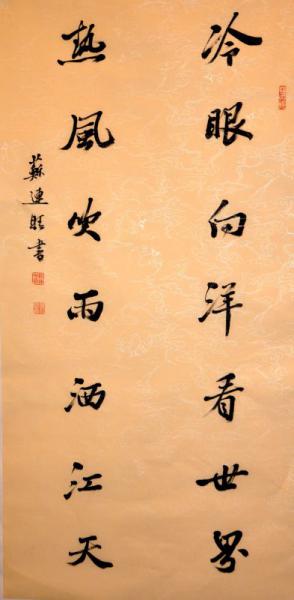 冷眼向洋看世界
热風吹雨洒江天
蘇連旺書